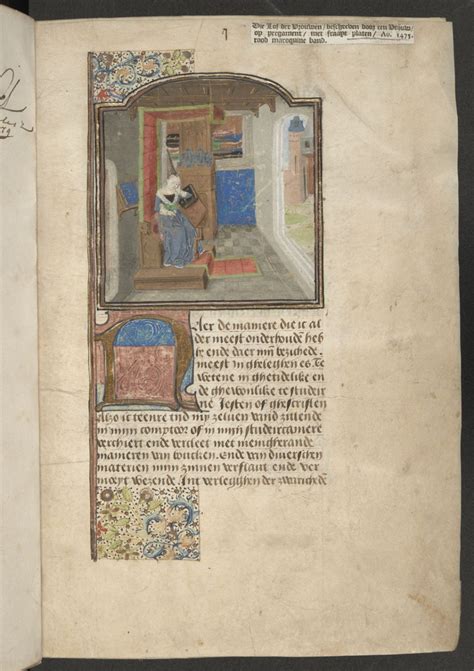 Die Lof der Vrouwen, beschreven door een Vrouw,
op pergament, met fraaye platen, Ao. 1475.
rood maroquine band.
Naer de maniere die ic al
der meest onderhoudē heb
be ende daer mijn
meest in gheleghen es Te
wetene in ghetidelike en
de ghewoenlike te studeir
ne
Also ic teenre tijd my zeluen vand zittende
in mijn comptoir of in mijn studoercamere
verchiert ende verciert met menigherande
manieren van boucken. Ende van diversschen
materien mijn zinnen verflaut ende ver
moeyt wezende. Int verlegghen der zwarichedē